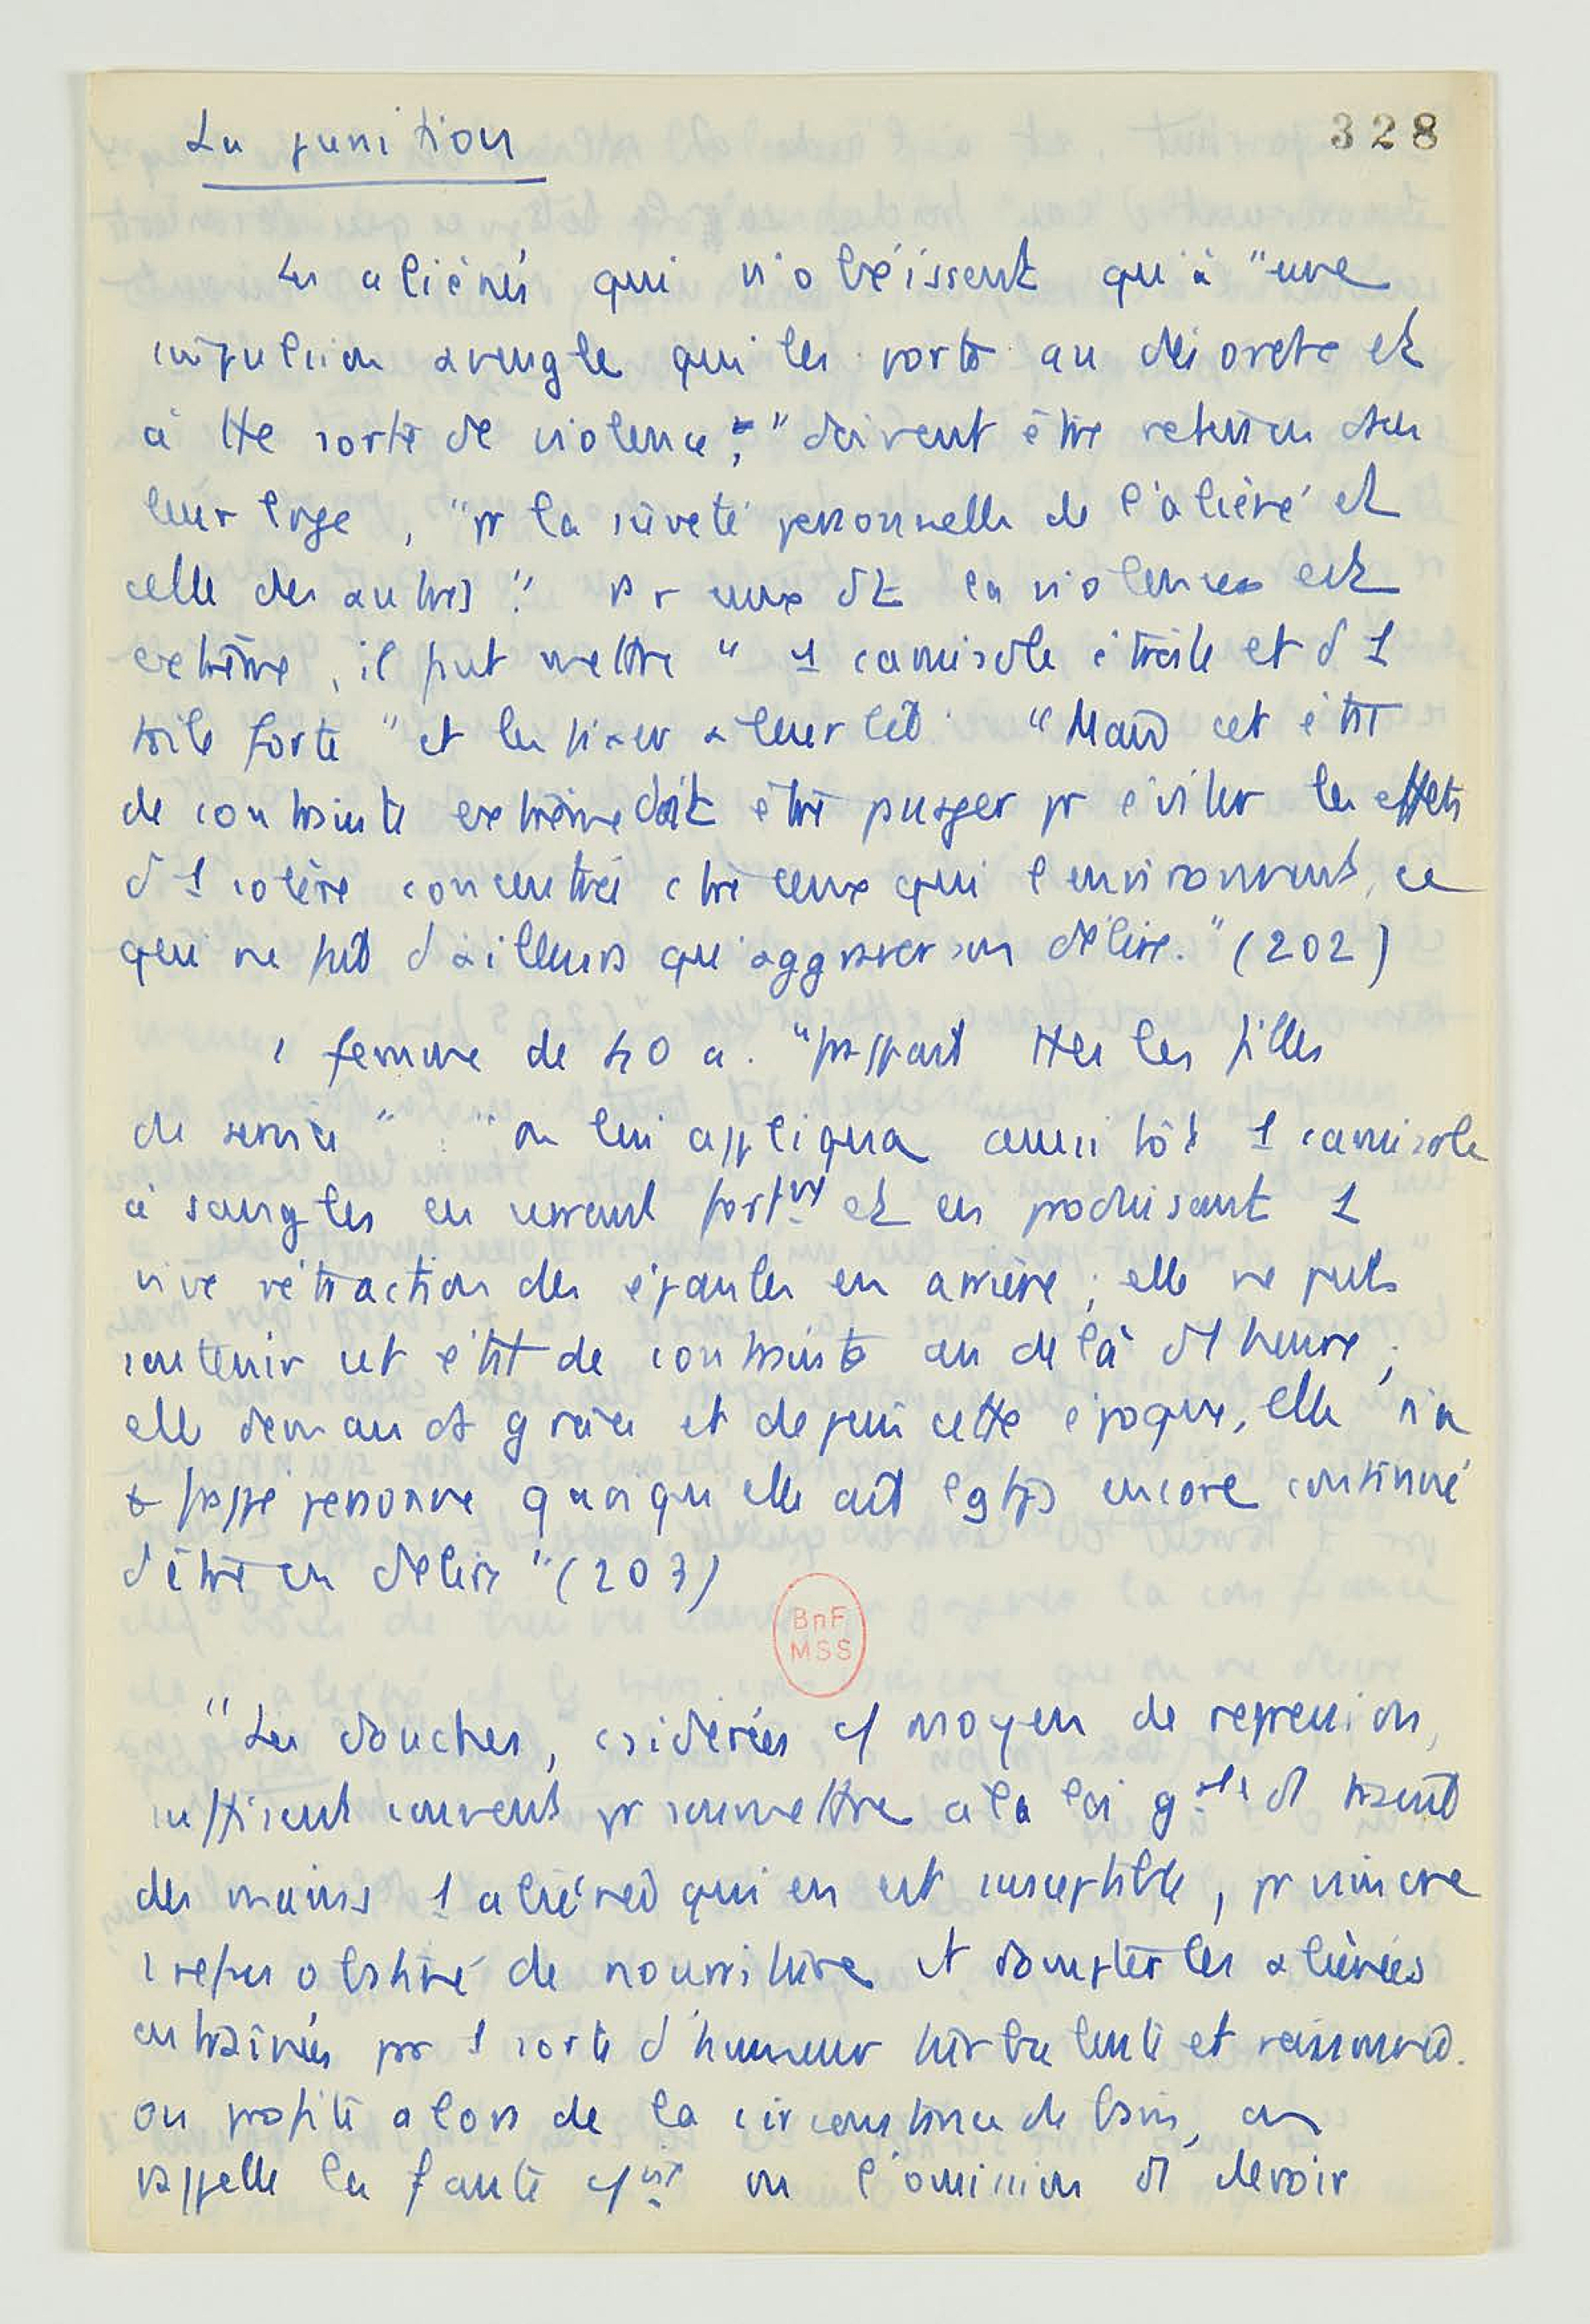 La punition
328
Les aliénés qui n'obéissent qu'à "une
impulsion aveugle qui les porte au désordre et
à tte sorte de violence," doivent être retenus ds
leur loge, "pr la sûreté personnelle de l'aliéné et
celle des autres". Pr ceux dt la violence est
extrême, il fut mettre "1 camisole étroite et d 1
toile forte" et les fixer à leur lit. "Mais cet état
de contrainte extrême doit être passager pr éviter les effets
d 1 colère concentrée ctre ceux qui l'environnent, ce
qui ne fait d'ailleurs qu'aggraver son délire." (202)
1 femme de 40 a. "frappait ttes les filles
de service". "on lui appliqua aussitôt 1 camisole
à sangles en serrant fortmt et en produisant 1
vive rétraction des épaules en arrière ; elle ne put
soutenir cet état de contrainte au delà d 1 heure ;
elle demanda grâce et depuis cette époque, elle n'a
+ frappé personne quoiqu'elle ait lgtps encore continué
d'être en délire" (203)
BnF
MSS
"Les douches, csidérées c/ moyen de répression,
suffisent souvent pr soumettre à la loi gale d 1 travail
des mains 1 aliénée qui en est susceptible, pr vaincre
1 refus obstiné de nourriture et dompter les aliénées
entraînées par 1 sorte d'humeur turbulente et raisonnée.
on profite alors de la circonstance de bain, on
rappelle la faute c/ise ou l'omission d 1 devoir